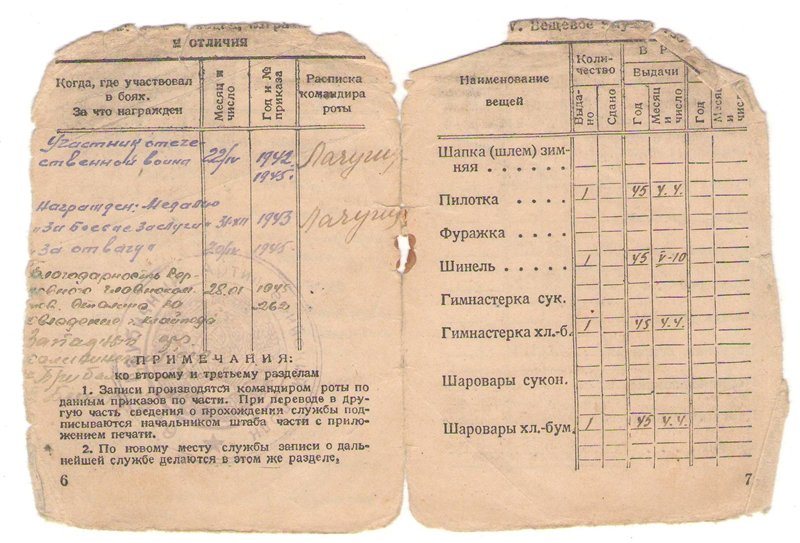 и отличия
Когда, где участвовал
в боях.
За что награжден
Месяц и
число
Год и №
приказа
Расписка
командира
роты
Участник отече-
ственной воины 22/IV 1942
1945.
Награжден: Медалью
"За Боевые Заслуги" 31-XII 1943
"За отвагу" 20/IV 1945
Благодарность Вер-
28.01 1945
тов. Сталина
262
Клайпеда
ПРИМЕЧАНИЯ:
ко второму и третьему разделам
1. Записи производятся командиром роты по
данным приказов по части. При переводе в дру-
гую часть сведения о прохождения службы под-
писываются начальником штаба части с прило-
жением печати.
2. По новому месту службы записи о даль-
нейшей службе делаются в этом же разделе.
6
V. Вещевое
Наименование
вещей
Коли-
чество
В
Выдачи
Выда-
но
Сдано
Год
Месяц
и
число
Год
Месяц
и
число
Шапка (шлем) зим-
няя . . . . . .
Пилотка . . . . . 1 45 4.4.
Фуражка . . . .
Шинель . . . . . 1 45 V-10
Гимнастерка сук.
Гимнастерка хл.-б. 1 45 4.4.
Шаровары сукон.
Шаровары хл.-бум. 1 45 4.4.
7